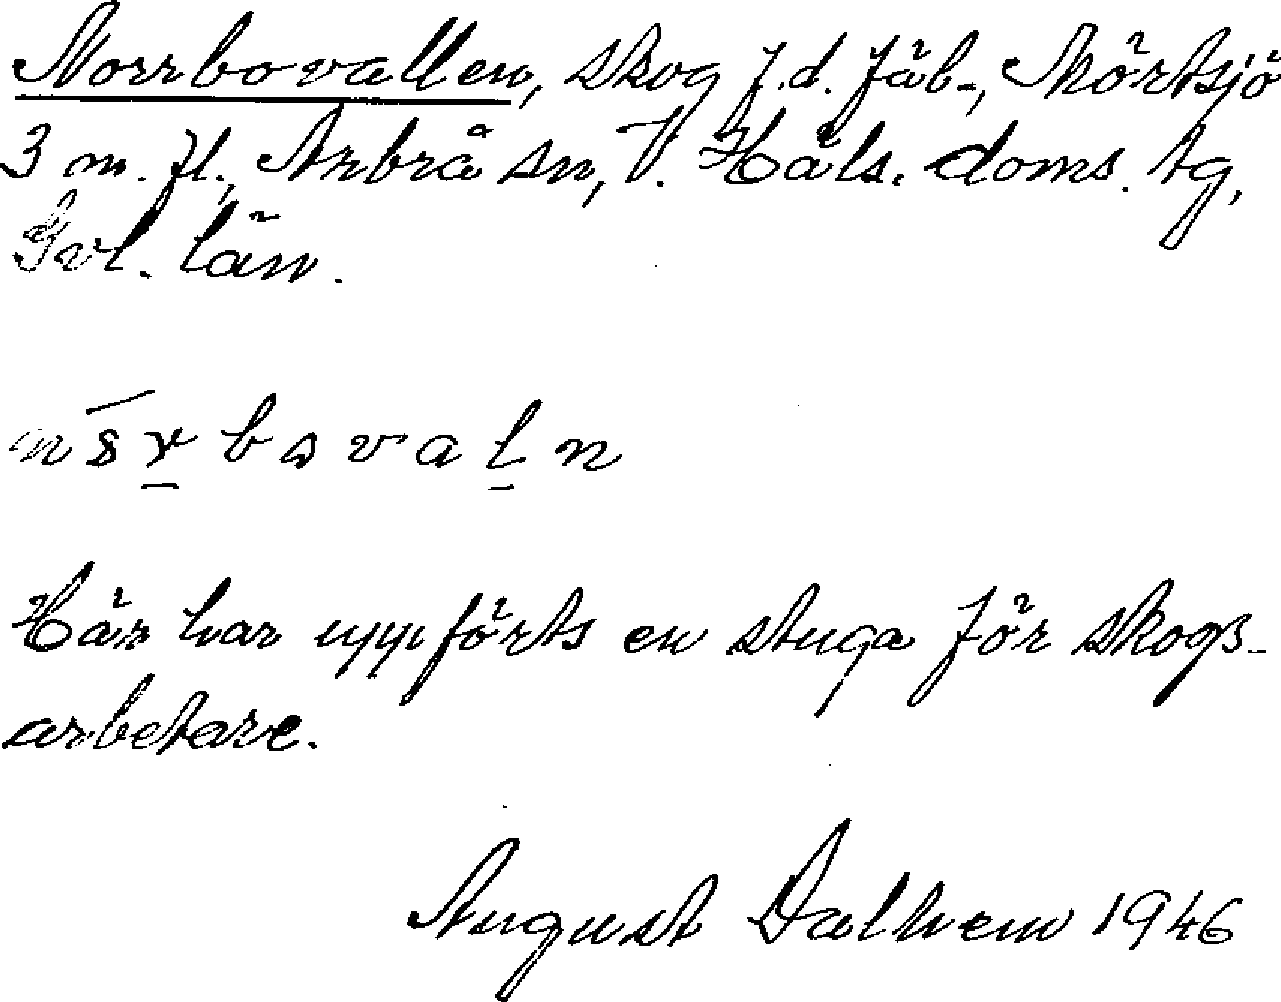 Norrbovallen, skog f.d. fäb., Mörtsjö
3 m. fl., Arbrå sn, V. Häls. doms. tg,
Gvl. län.
Här har uppförts en stuga för skogs-
arbetare.
August Dalhem 1946